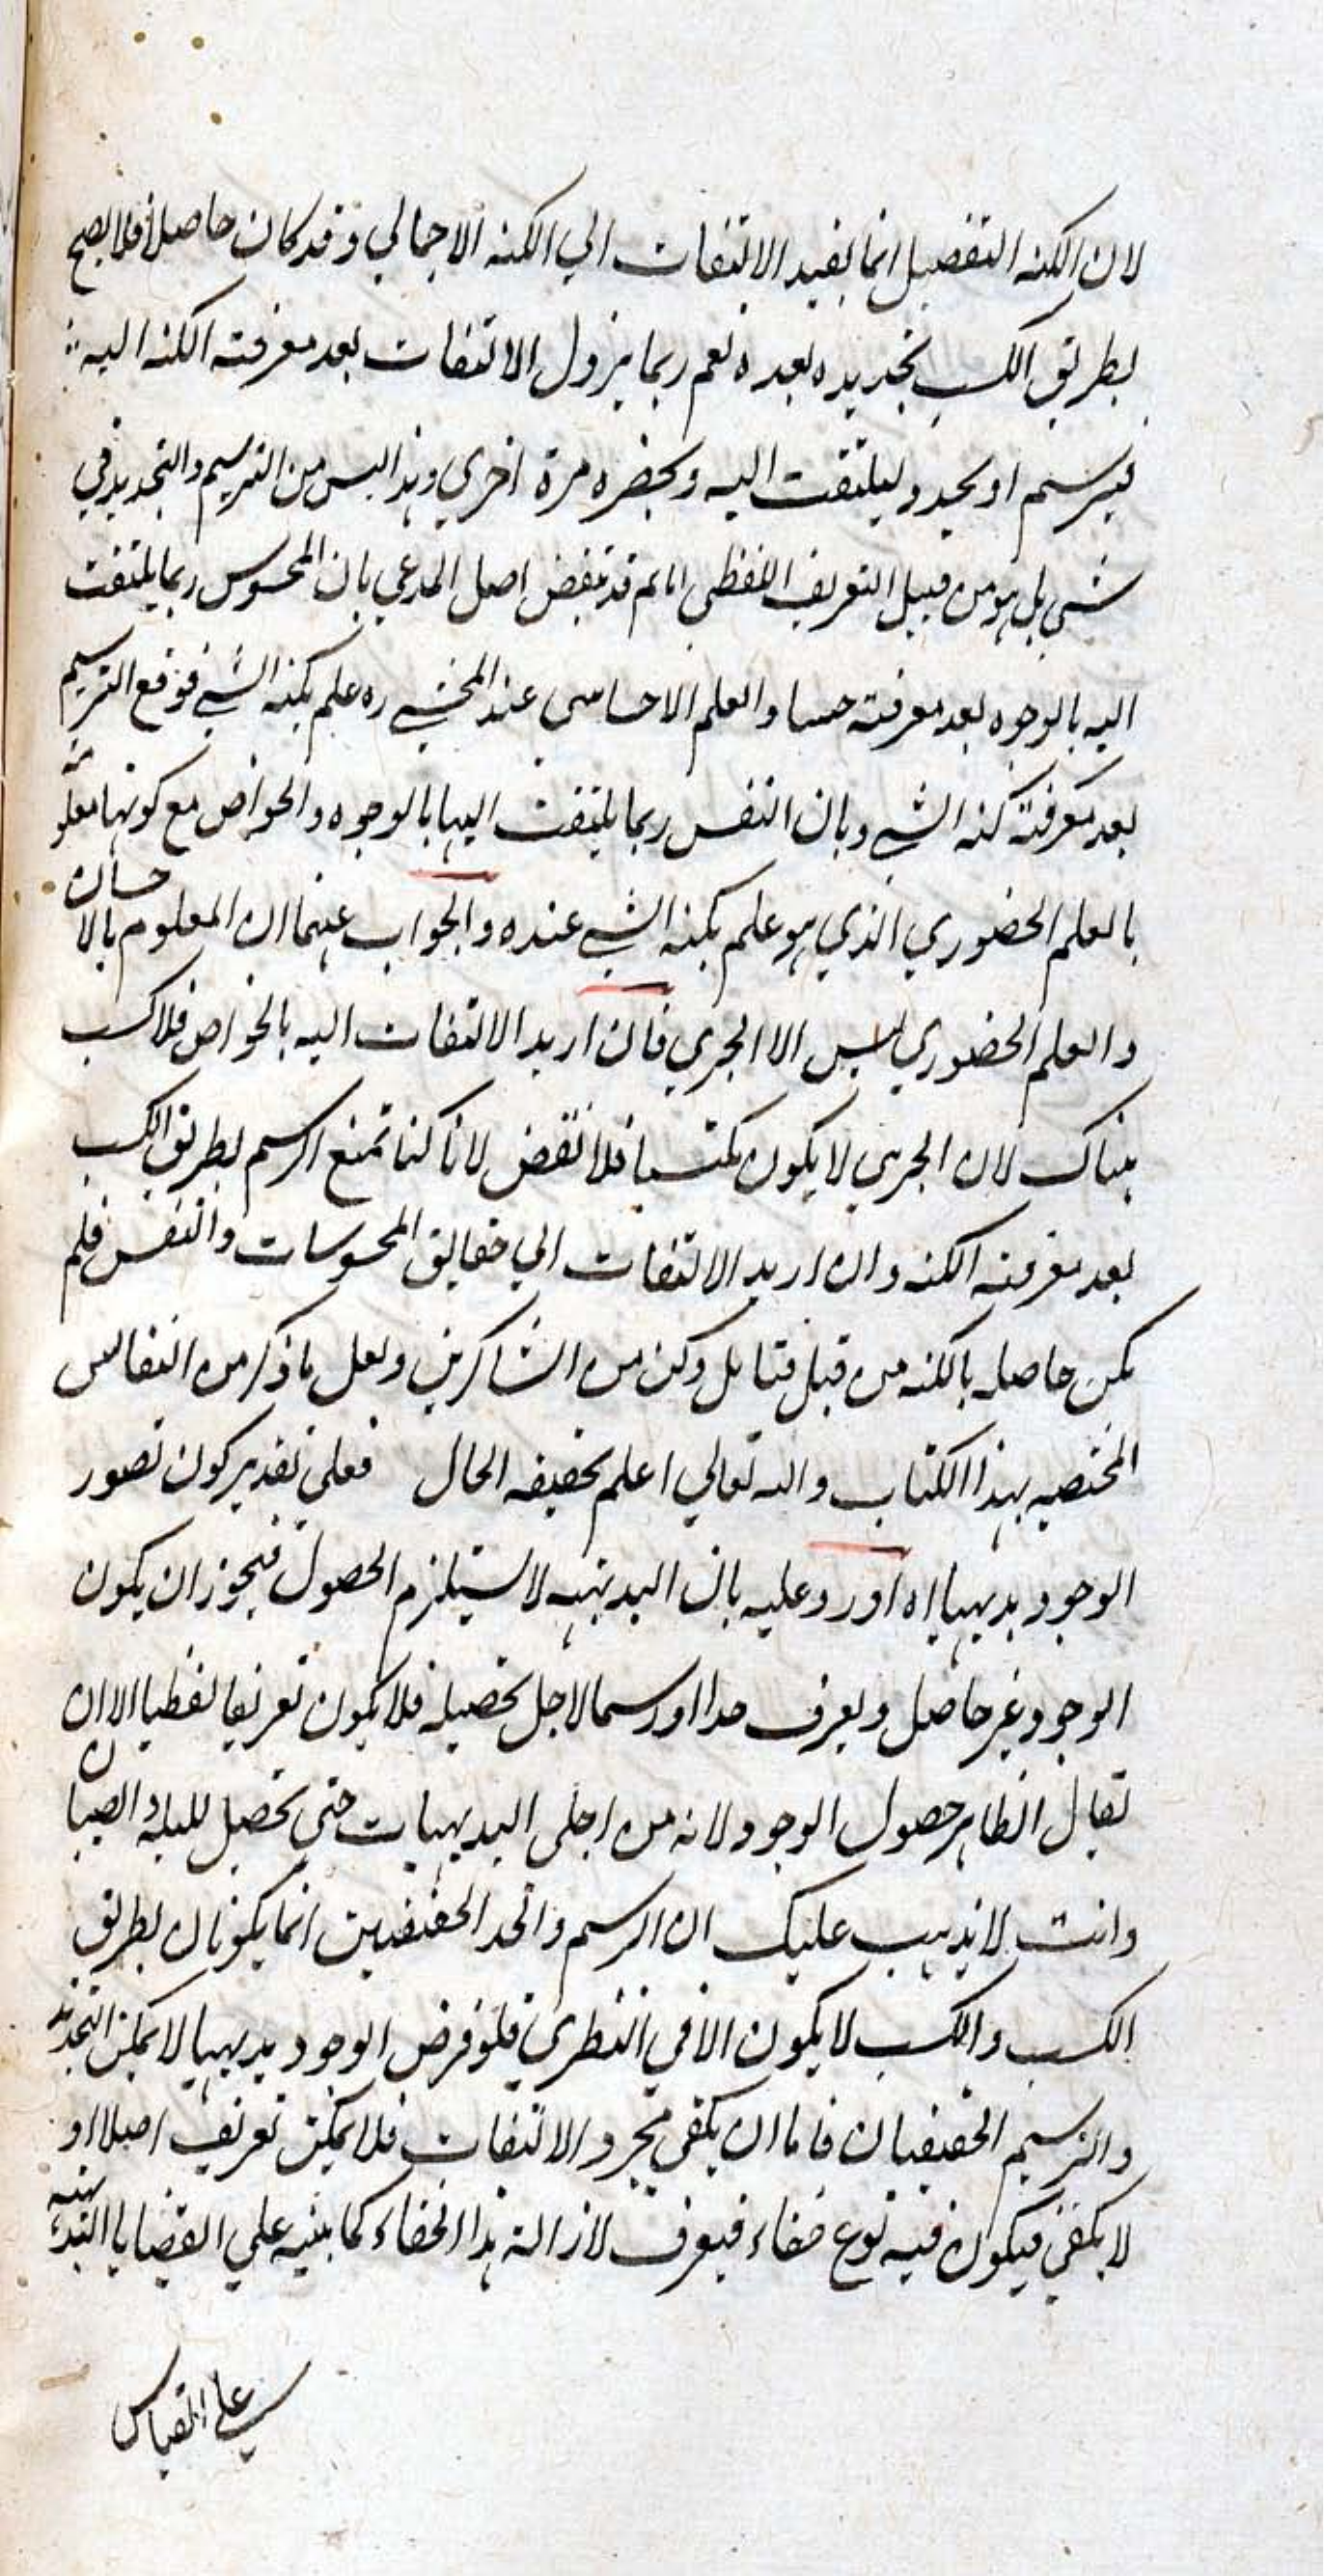 لان الكنه التفصيل انما يفيد الالتفات الي الكنه الاجمالي وقد كان حاصلا فلا يصح
بطريق الكسب تحديده بعده نعم ربما يزول الالتفات بعد معرفته الكنه اليه
فيرسم او يحدد ليلتفت اليه ويحضره مرة اخري وهذا ليس من الترسيم والتحديد في
شي بل هو من قبيل التعريف اللفظي ثم قد ينقض اصل المدعي بان المحسوس ربما يلتفت
اليه بالوجوه بعد معرفته حسا والعلم الاحساسي عند المحشي ره علم بكنه الشي فوقع الترسيم
بعد معرفته كنه الشي وبان النفس ربما يلتفت اليها بالوجوه والخواص مع كونها معلومة
بالعلم الحضوري الذي هو علم بكنه الشي عنده والجواب عنهما ان المعلوم بالاحساس
والعلم الحضوري ليس الا الجزي فان اريد الالتفات اليه بالخواص فلا كسب
هناك لان الجزي لا يكون مكتسبا فلا نقض لانا كنا نمنع الرسم بطريق الكسب
بعد معرفته الكنه وان اريد الالتفات الي حقايق المحسوسات والنفس فلم
يكن حاصله بالكنه من قبل فتامل وكن من الشاكرين ولعل ما ذكر من النفايس
المختصه بهذا الكتاب والله تعالي اعلم بحقيقه الحال فعلي تقدير كون تصور
الوجود بديهيا اه اورد عليه بان البديهيه لا يستلزم الحصول فيجوز ان يكون
الوجود غير حاصل ويعرف حدا او رسما لاجل تحصيله فلا يكون تعريفا لفظيا الا ان
يقال الظاهر حصول الوجود لانه من اجلى البديهيات حتى تحصل للبله والصبيان
وانت لا يذهب عليك ان الرسم والحد الحقيقيين انما يكونان بطريق
الكسب والكسب لا يكون الا في النظري فلو فرض الوجود بديهيا لا يمكن التحديد
والترسيم الحقيقيان فاما ان يكفي مجرد الالتفات فلا يمكن تعريف اصلا او
لا يكفي فيكون فيه نوع خفاء فيعرف لازالة هذا الخفاء كما ينبه علي القضايا البديهيه
علي القياس